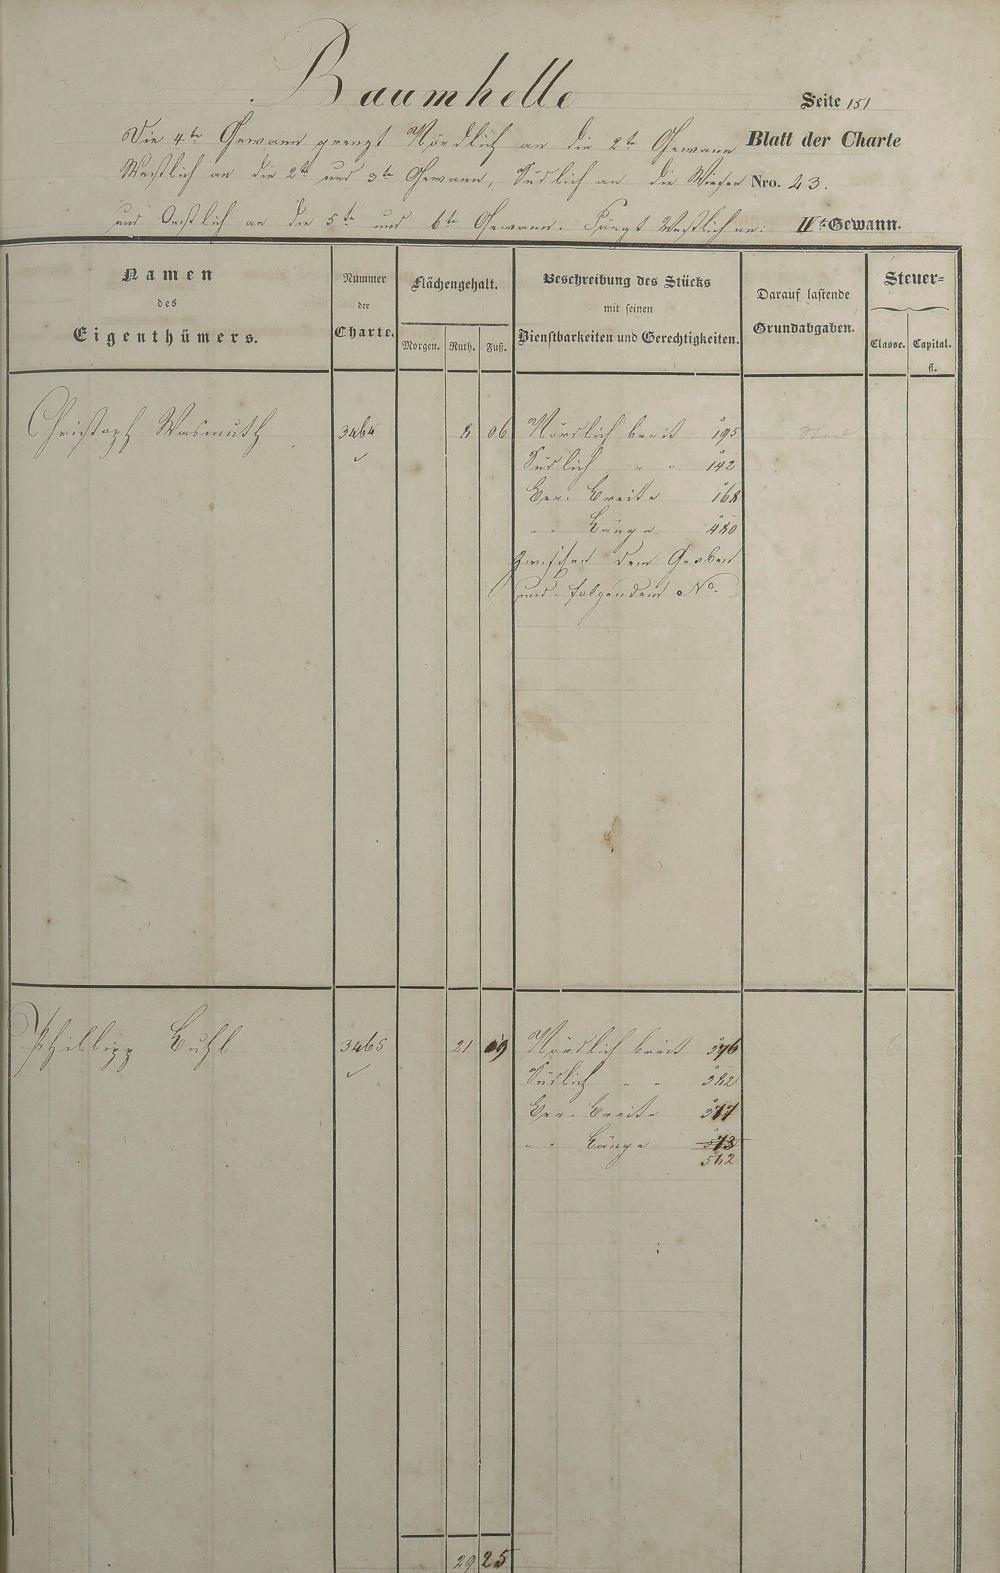 Baumhelle
Seite 151
Die 4te Gewann grenzt Nördlich an die 2te Gewann
Blatt der Charte
Westlich an die 2te und 3te Gewann, Südlich an die Wiesen
Nro. 23.
und Oestlich an die 5te und 6te Gewann. Fängt Westlich an:
IVte Gewann.
Namen
des
Eigenthümers.
Nummer
der
Charte.
Flächengehalt.
Morgen. Ruth. Fuß.
Beschreibung des Stücks
mit seinen
Dienstbarkeiten und Gerechtigkeiten.
Darauf lastende
Grundabgaben.
Steuer=
Classe. Capital.
fl.
Christoph Wasmuth 3464 8 06 Nördlich breit 195
Südlich " " 142
Ver. Breite 168
" " Länge 480
zwischen dem Graben
und folgendem No.
Phillipp Buhl 3465 21 19 Nördlich breit 376
Südlich " " 382
Ver. Breite 377
" " Länge 573
562
29 25